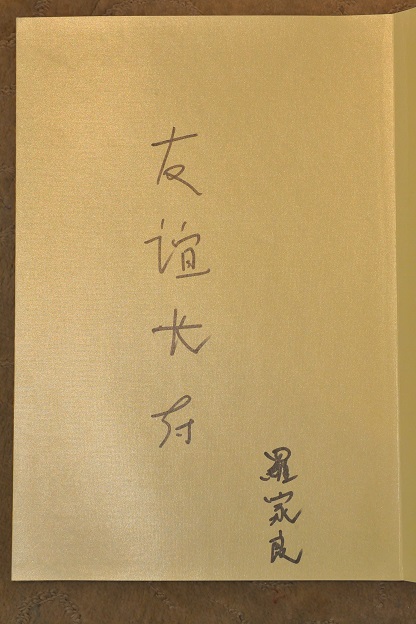 友谊长存
羅家良